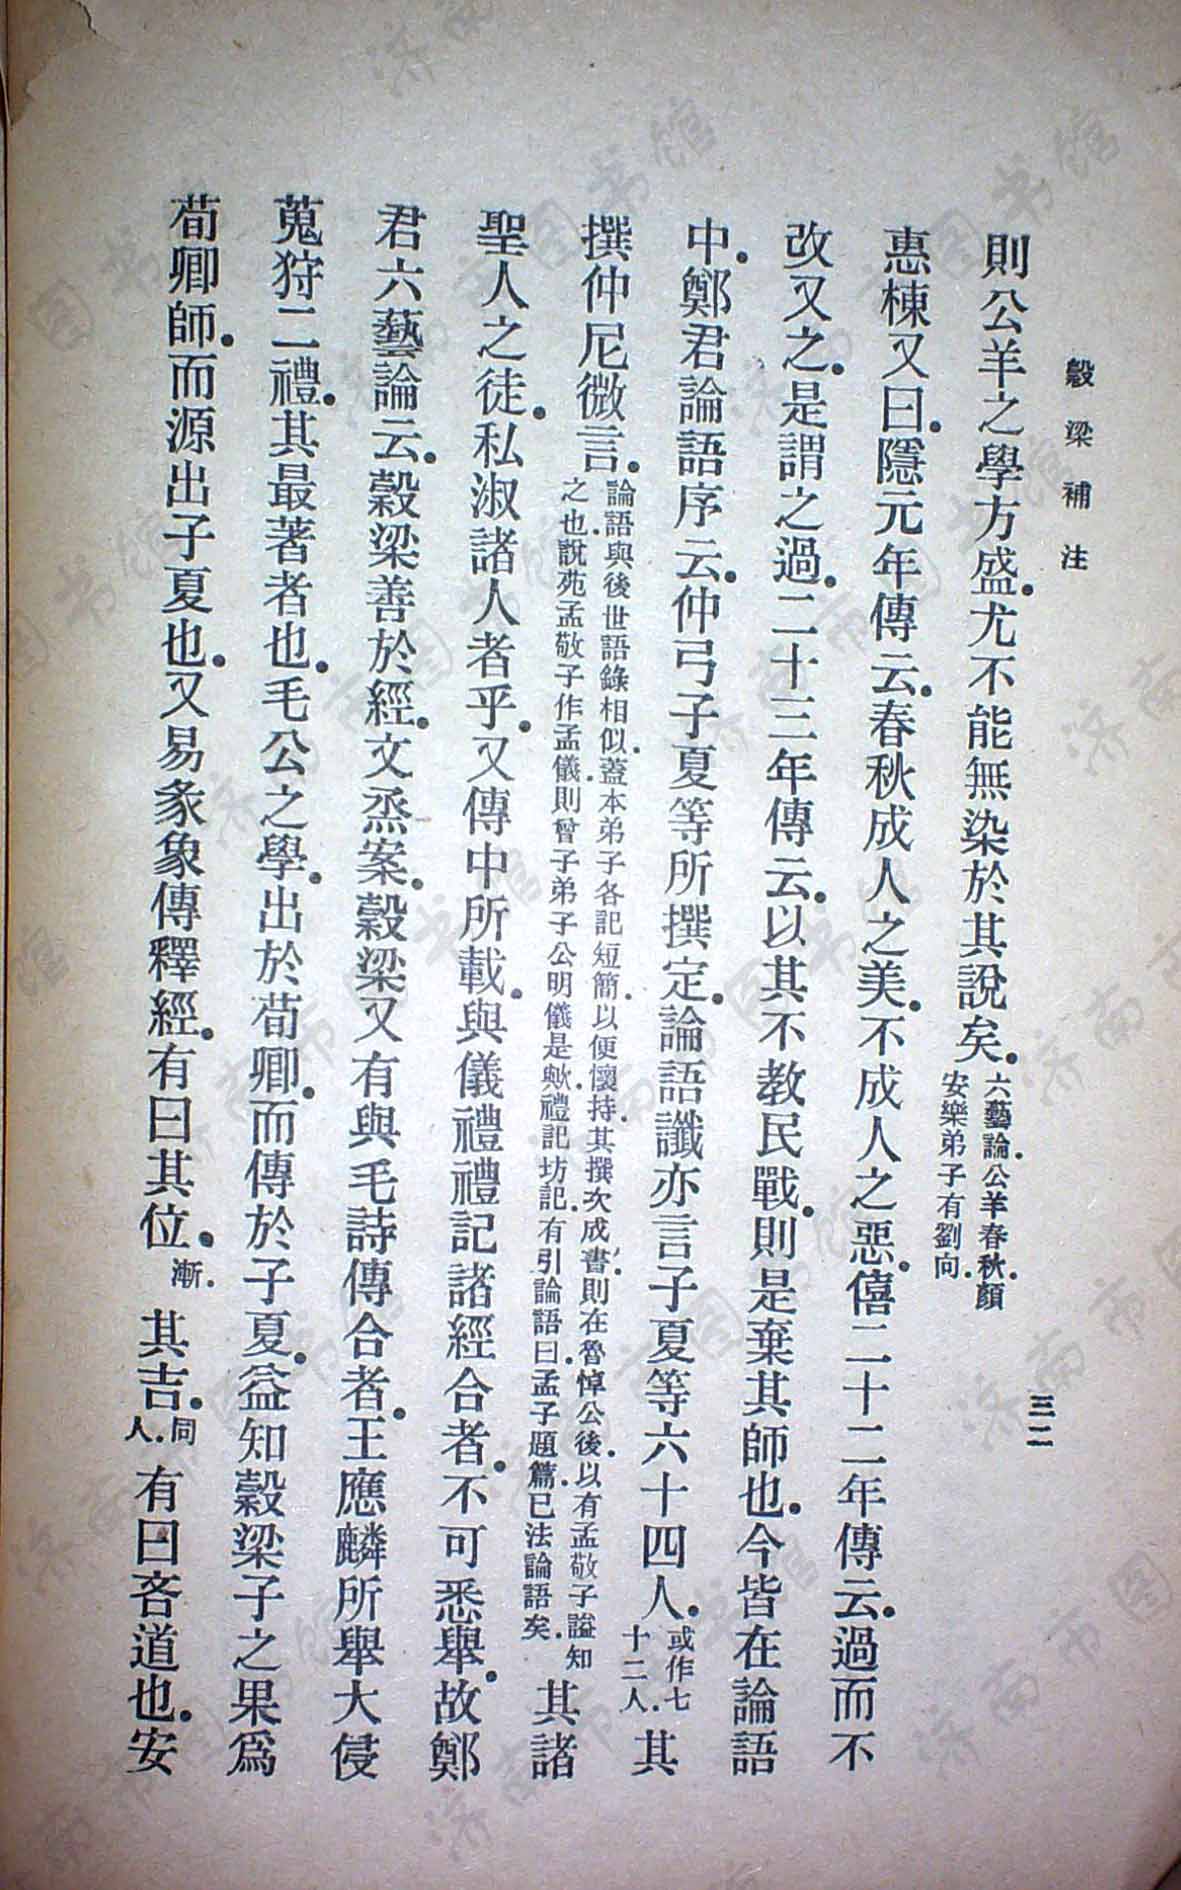 穀梁補注
三二
則公羊之學方盛.尤不能無染於其說矣.六藝論.公羊春秋.顏安樂弟子有劉向.
惠棟又曰.隱元年傳云.春秋成人之美.不成人之惡.僖二十二年傳云.過而不
改又之.是謂之過.二十三年傳云.以其不教民戰.則是棄其師也.今皆在論語
中.鄭君論語序云.仲弓子夏等所撰定.論語讖亦言子夏等六十四人.或作七十二人.其
撰仲尼微言.論語與後世語錄相似.蓋本弟子各記短簡.以便懷持.其撰次成書.則在魯悼公後.以有孟敬子諡知之也.說苑孟敬子作孟儀.則曾子弟子公明儀是歟.禮記坊記.有引論語曰.孟子題篇.已法論語矣.其諸
聖人之徒.私淑諸人者乎.又傳中所載.與儀禮禮記諸經合者.不可悉舉.故鄭
君六藝論云.穀梁善於經.文烝案.穀梁又有與毛詩傳合者.王應麟所舉大侵
蒐狩二禮.其最著者也.毛公之學.出於荀卿.而傳於子夏.益知穀梁子之果爲
荀卿師.而源出子夏也.又易彖象傳釋經.有曰其位.漸.其吉.同人.有曰吝道也.安